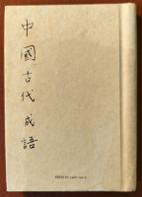 中國古代成語